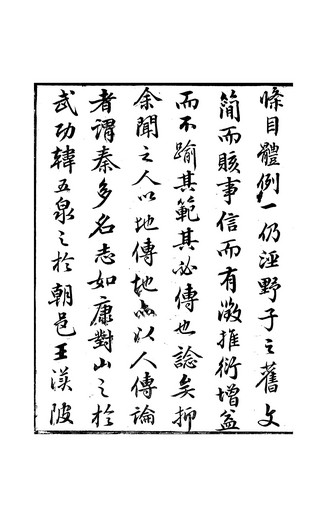 條目體例一仍涇野子之舊文
簡而賅事信而有徵推衍增益
而不踰其範其必傳也諗矣抑
余聞之人以地傳地亦以人傳論
者謂秦多名志如康對山之於
武功韓五泉之於朝邑王渼陂